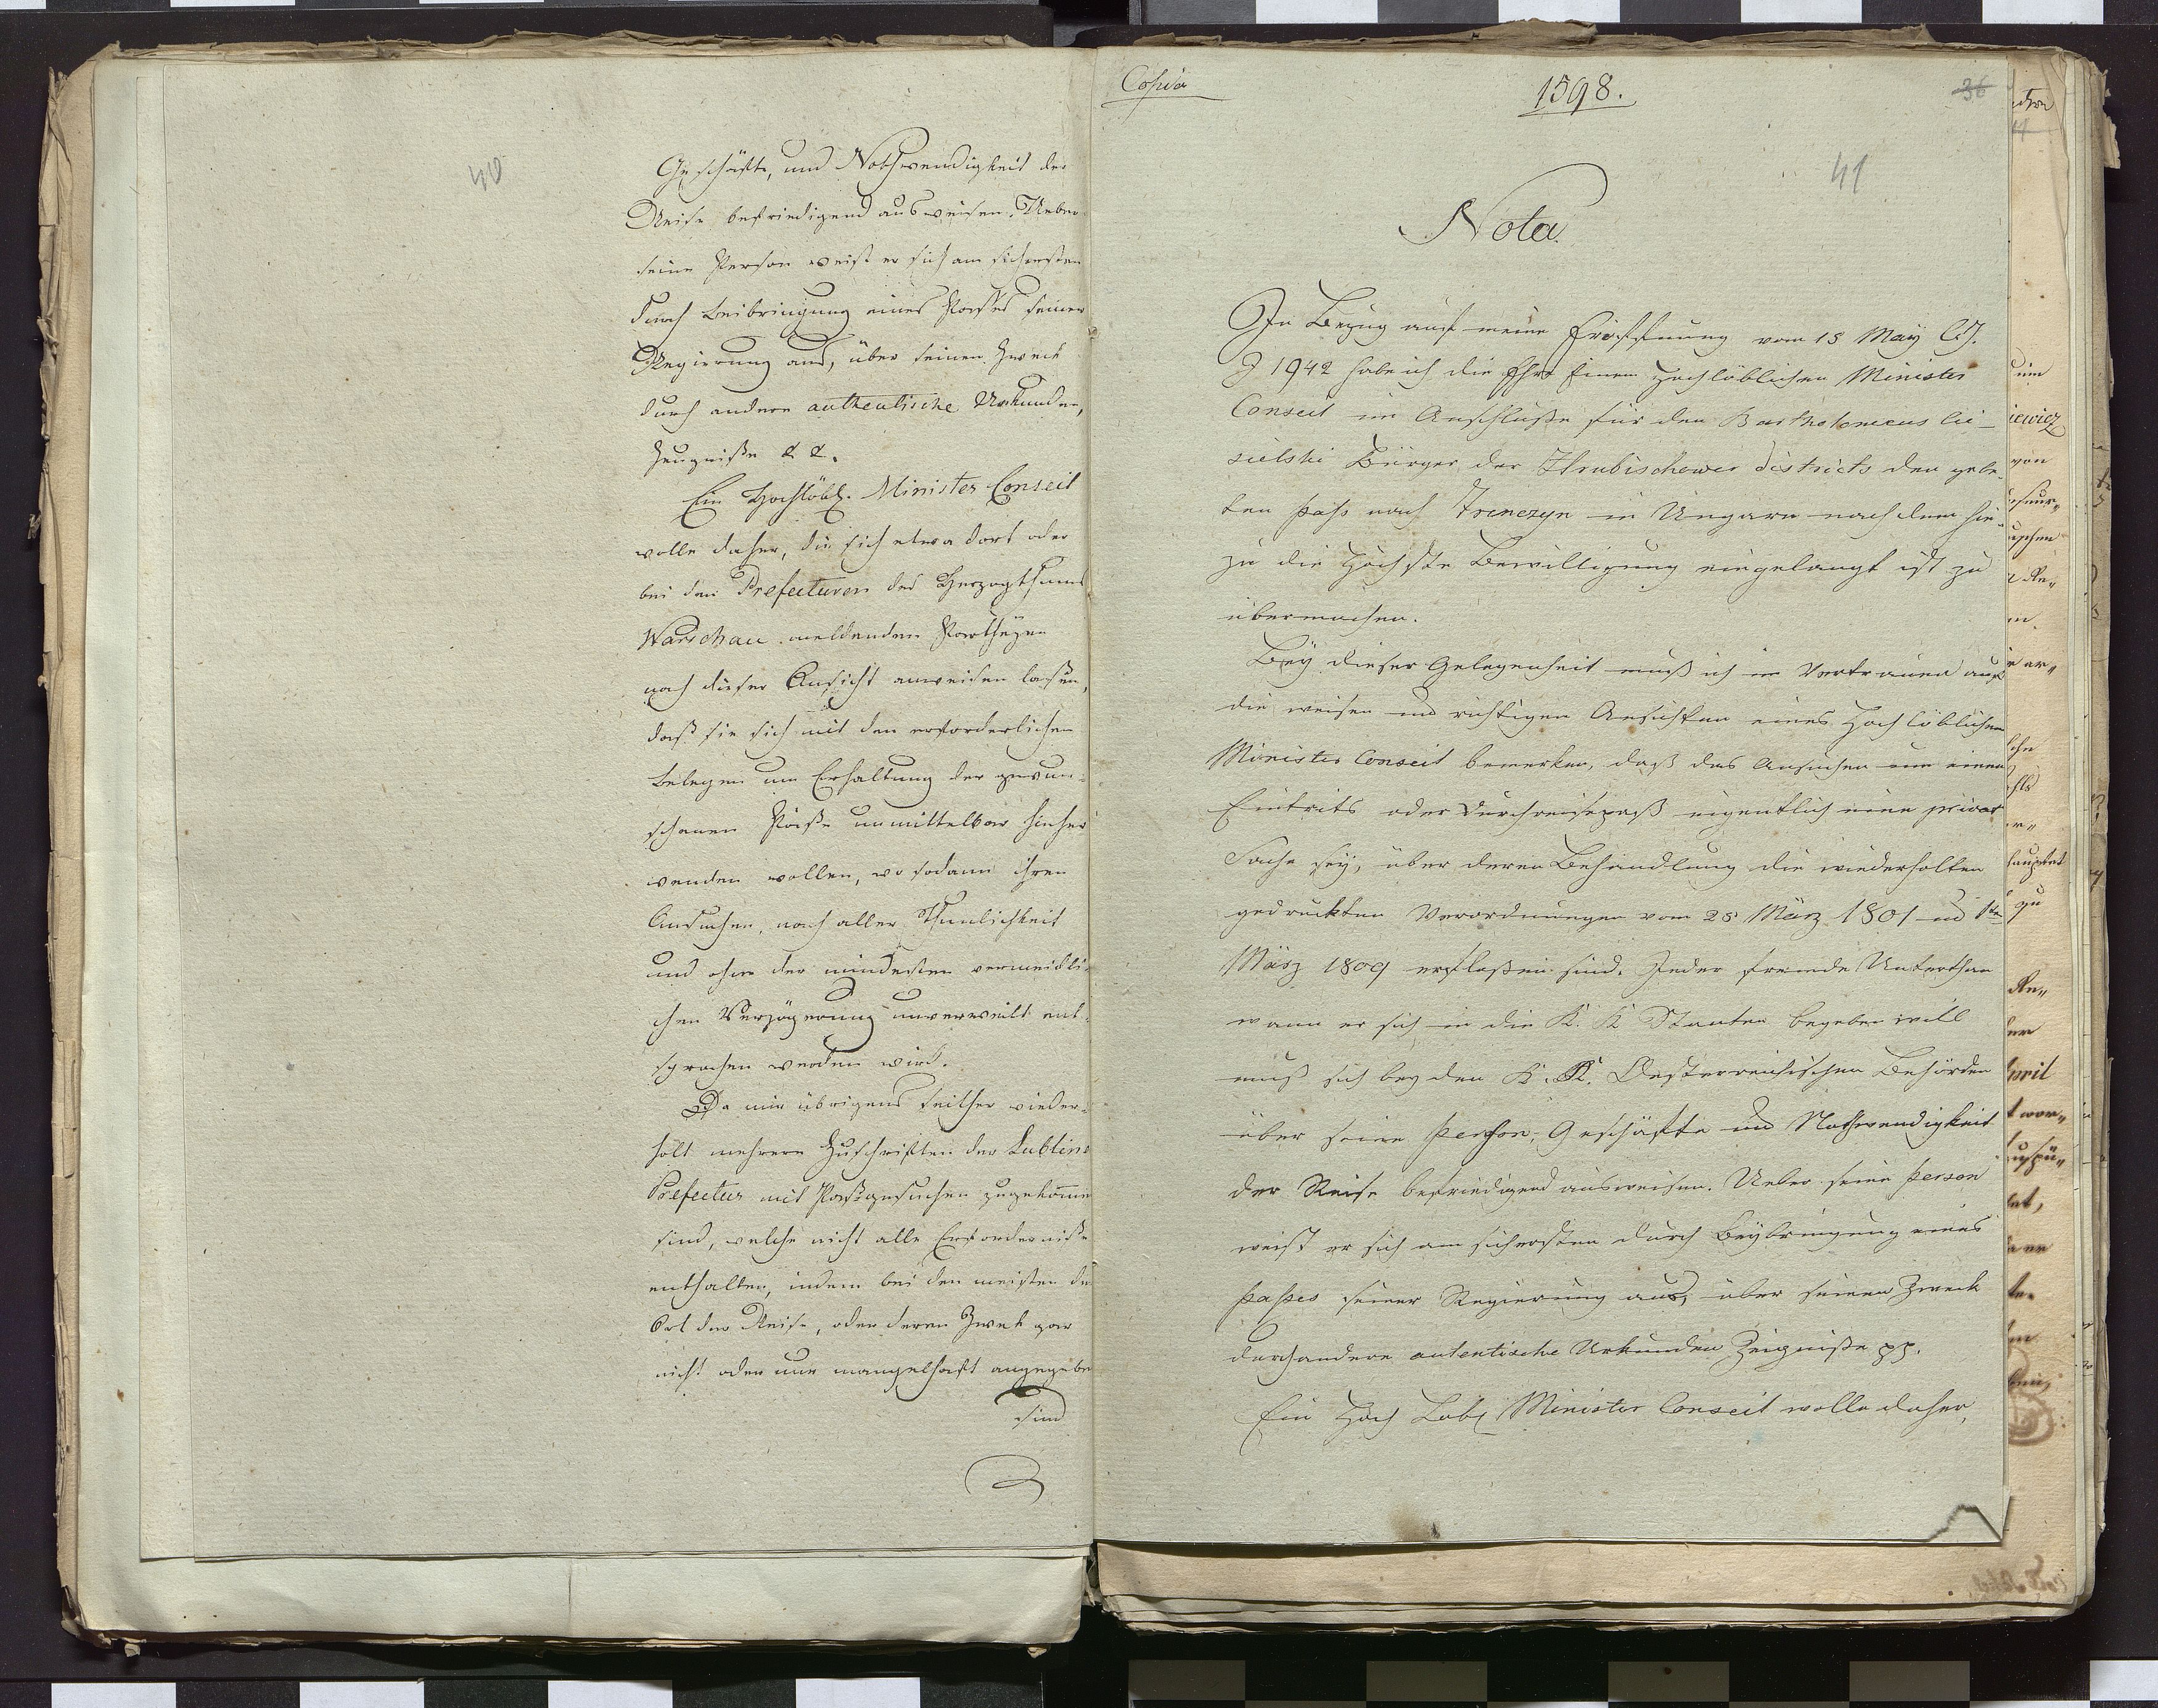 40
Geschäfte, und Nothwendigkeit der
Reise befriedigend ausweisen. Ueber
seine Person weist er sich am sichersten
durch Beibringung eines Passes seiner
Regierung aus, über seinen Zweck
durch andere authentische Urkunden,
Zeugniße & &.
Ein Hochlöbl. Minister Conseil
wolle daher, die sich etwa dort oder
bei den Prefecturen des Herzogthums
Warschau meldenden Partheyen
nach dieser Ansicht anweisen laßen,
daß sie sich mit den erforderlichen
Belegen um Erhaltung der gewun-
schenen Päße unmittelbar hieher
wenden wollen, wo sodann ihren
Ansuchen, nach aller Thunlichkeit
und ohne der mindesten vermeidli-
chen Verzögerung unverweilt ent-
sprochen werden wird.
Da mir übrigens seither wieder-
holt mehrere Zuschriften der Lubliner
Prefectur mit Paßgesuchen zugekommen
sind, welche nicht alle Erforderniße
enthalten, indem bei den meisten der
Ort der Reise, oder deren Zwek gar
nicht oder nur mangelhaft angegeben
sind
Copia
1598.
36
41
Nota
In Bezug auf meine Eröffnung vom 15 May l. J.
Z 1942 habe ich die Ehre Einem hochlöblichen Minister
Conseil im Anschluße für den Bartholomeus Cie-
sielski Bürger des Hrubischower Districts den gebe-
ten paß nach Trenczyn in Ungarn nachdem hie-
zu die höchste Bewilligung eingelangt ist zu
übermachen.
Bey dieser Gelegenheit muß ich im Vertrauen auf
die weisen und richtigen Ansichten eines Hochlöblichen
Minister Conseil bemerken, daß das Ansuchen um einen
Eintrits oder Durchreisepaß eigentlich eine privat
Sache sey, über deren Behandlung die wiederholten
gedruckten Verordnungen vom 25 März 1801 und
März 1809 erfloßen sind. Jeder fremde Unterthan
wann er sich in die K. K Staaten begeben will
muß sich bey den K. K. Oesterreichischen Behörden
über seine Person, Geschäfte und Nothwendigkeit
der Reise befriedigend ausweisen. Ueber seine Person
weist er sich am sichersten durch Beybringung eines
Passes seiner Regierung aus, über seinen Zweck
durch andere autentische Urkunden Zeigniße pp.
Ein Hoch Löbl Minister Conseil wolle daher,